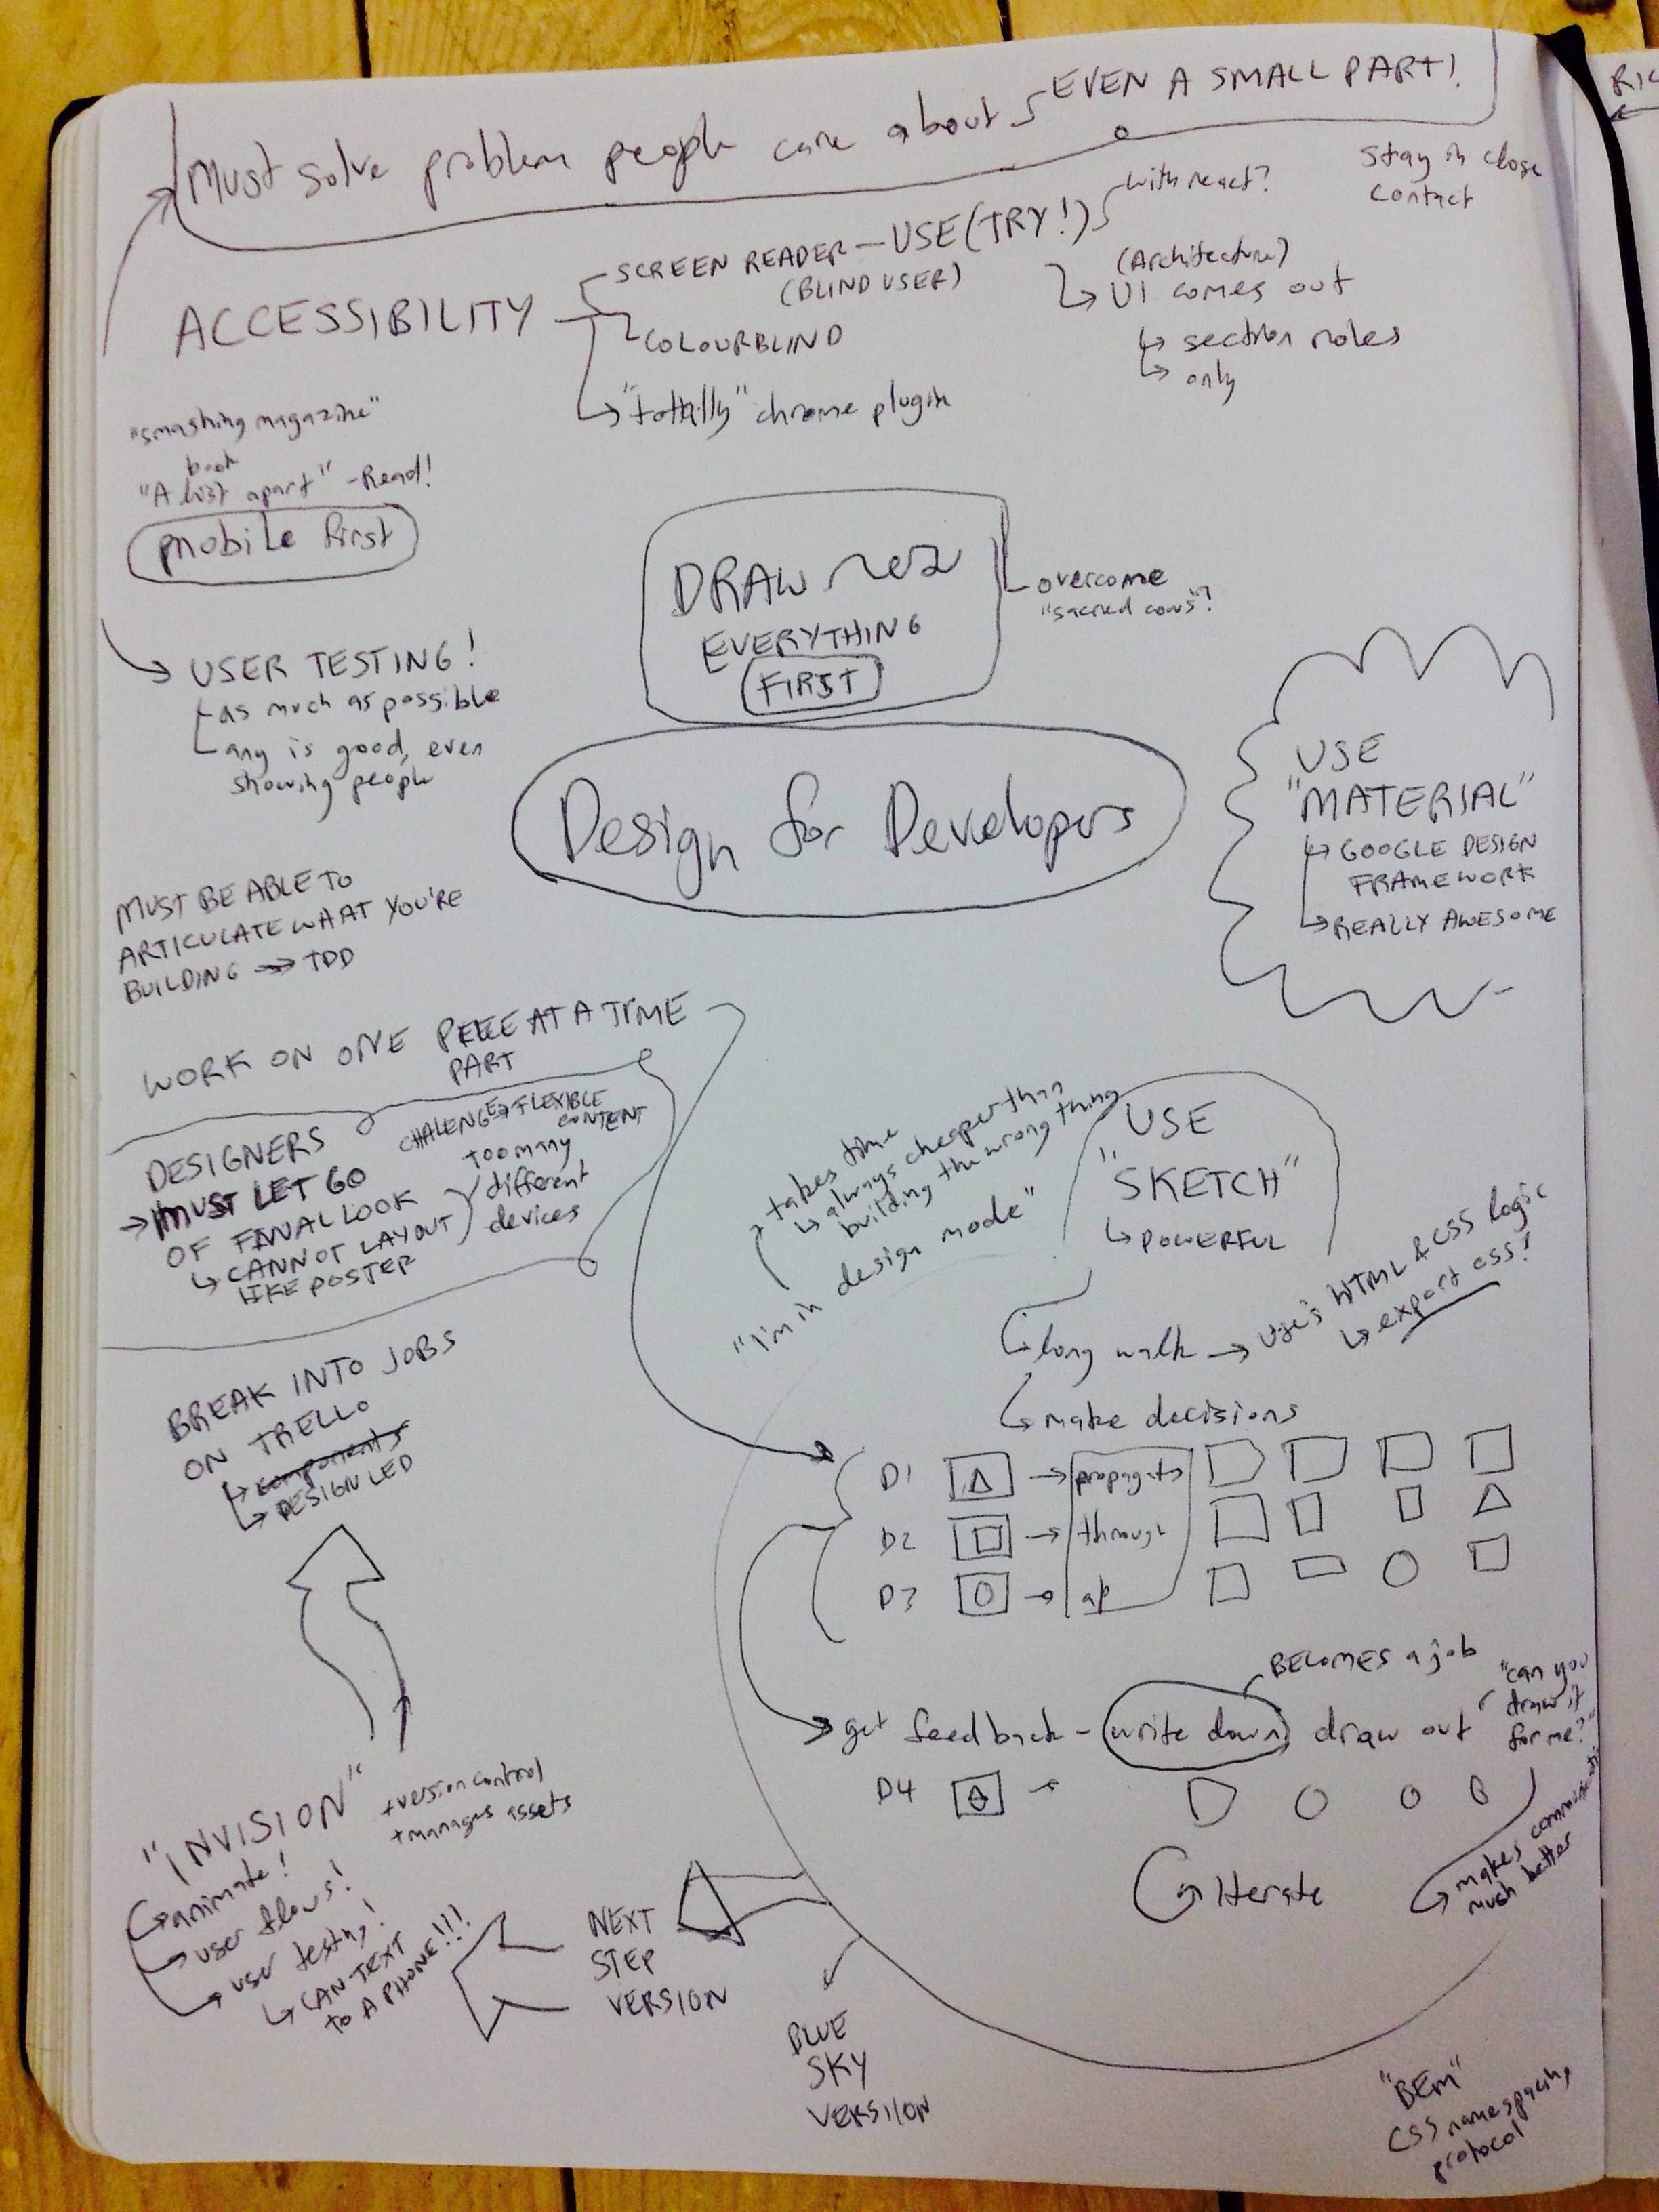 Must solve problem people care about
EVEN A SMALL PART!
RIC
stay in close
contact
ACCESSIBILITY
SCREEN READER - USE (TRY!)
with react?
(BLIND USER)
COLOURBLIND
"tottally" chrome plugin
(Architecture)
UI comes out
section roles
only
"smashing magazine"
book
"A list apart" - Read!
mobile first
DRAW
EVERYTHING
FIRST
overcome
"sacred cows"?
USER TESTING!
as much as possible
any is good, even
showing people
Design for Developers
USE
"MATERIAL"
GOOGLE DESIGN
FRAMEWORK
REALLY AWESOME
MUST BE ABLE TO
ARTICULATE WHAT YOU'RE
BUILDING → TDD
WORK ON ONE PIECE AT A TIME
PART
DESIGNERS
→ MUST LET GO
OF FINAL LOOK
CANNOT LAYOUT
LIKE POSTER
CHALENGE → FLEXIBLE
CONTENT
TOO many
different
devices
takes time
always cheaper than
building the wrong thing
"I'm in design mode"
USE
"SKETCH"
POWERFUL
long walk → uses HTML & CSS logic
export css!
make decisions
BREAK INTO JOBS
ON TRELLO
components
DESIGN LED
D1 → propagate
D2 → through
D3 →
BECOMES a job
get feedback - write down draw out
"can you
draw it
for me?"
D4
makes
much better
iterate
"INVISION"
+version control
+manages assets
animate!
user flows!
user testing!
CAN TEXT
to A PHONE!!!
NEXT
STEP
VERSION
BLUE
SKY
VERSION
"BEM"
CSS namespacing
protocol